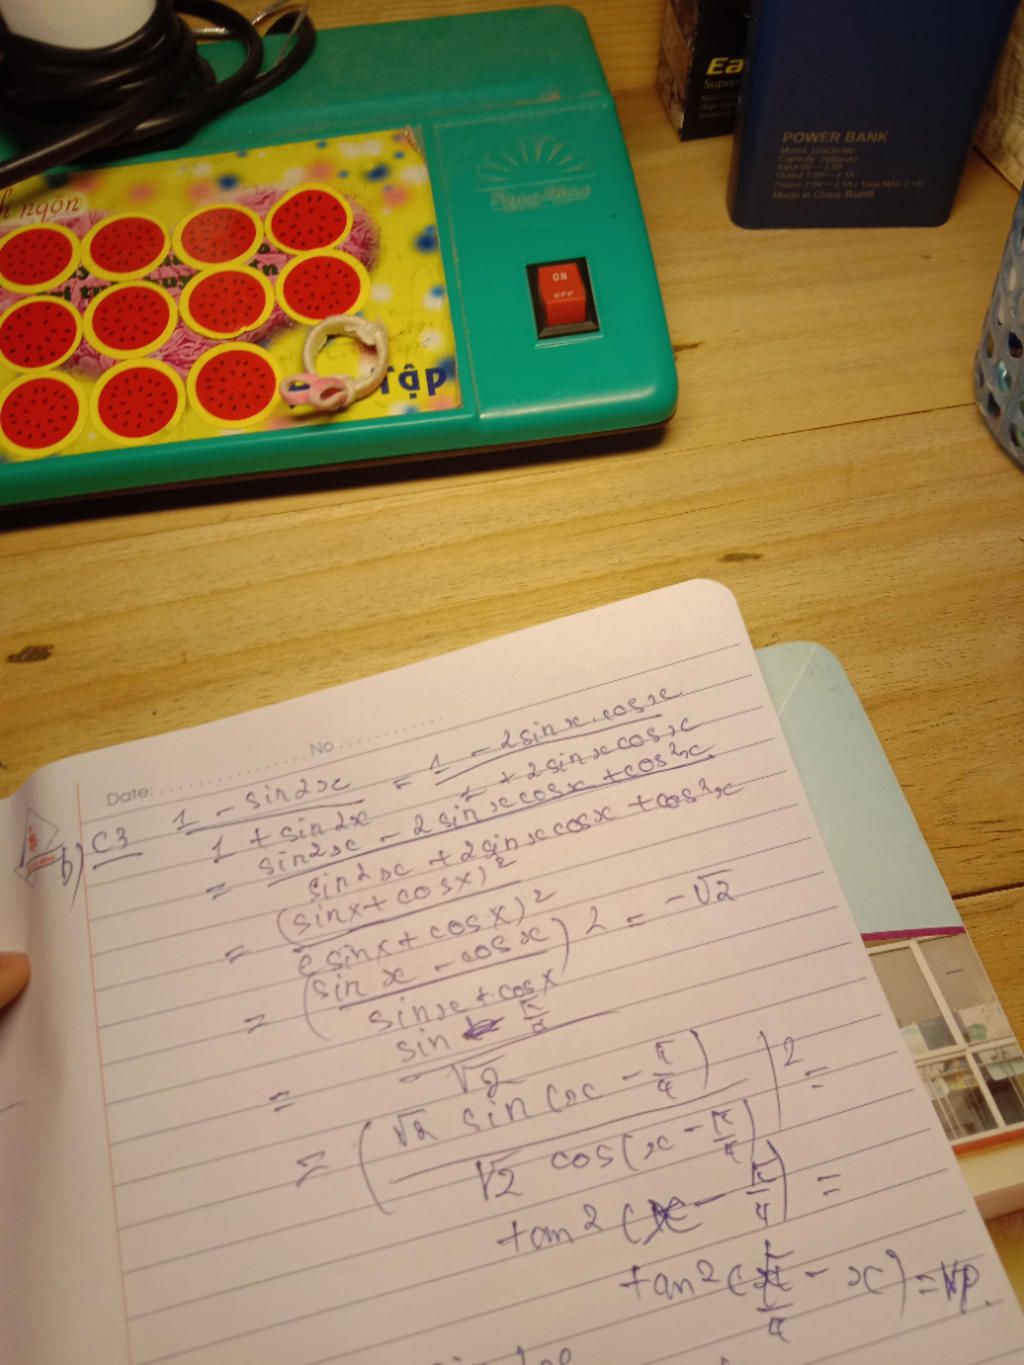 Ea
POWER BANK
Made in China RoHS
h ngon
ON
OFF
TẬP
No
Date:
b) C3 (1 - sin2x)/(1 + sin2x) = (1 - 2sinx.cosx)/(1 + 2sinxcosx)
= (sin²x - 2sinxcosx + cos²x)/(sin²x + 2sinxcosx + cos²x)
= (sinx + cosx)²/(sinx + cosx)²
= ((sinx - cosx)/(sinx + cosx))² = -√2
= (sin π/4)/√2
= (√2 sin(x - π/4)/√2 cos(x - π/4))² =
tan²(x - π/4) =
tan²(π/4 - x) = VP.